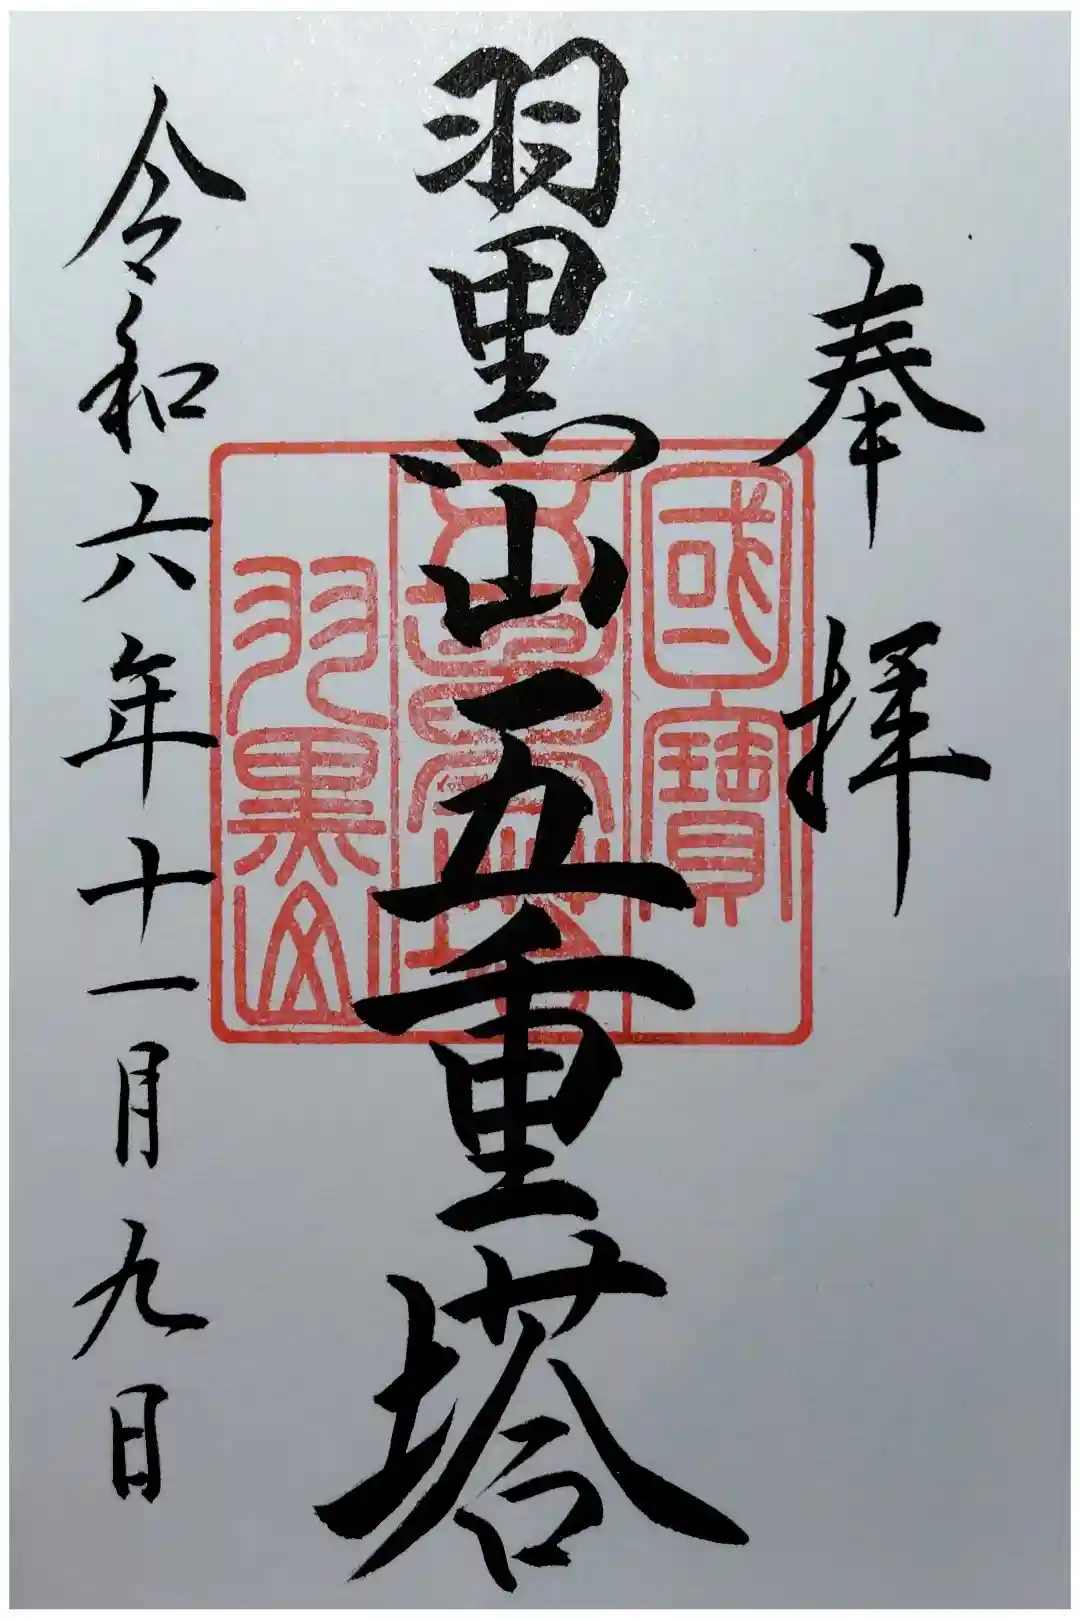 奉拝
國寶
羽黒山五重塔
羽黒山
令和六年十一月九日